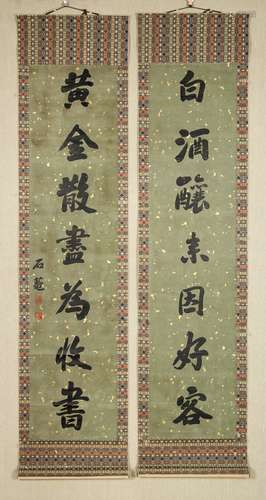 白酒釀來因好客
黃金散盡為收書
石菴